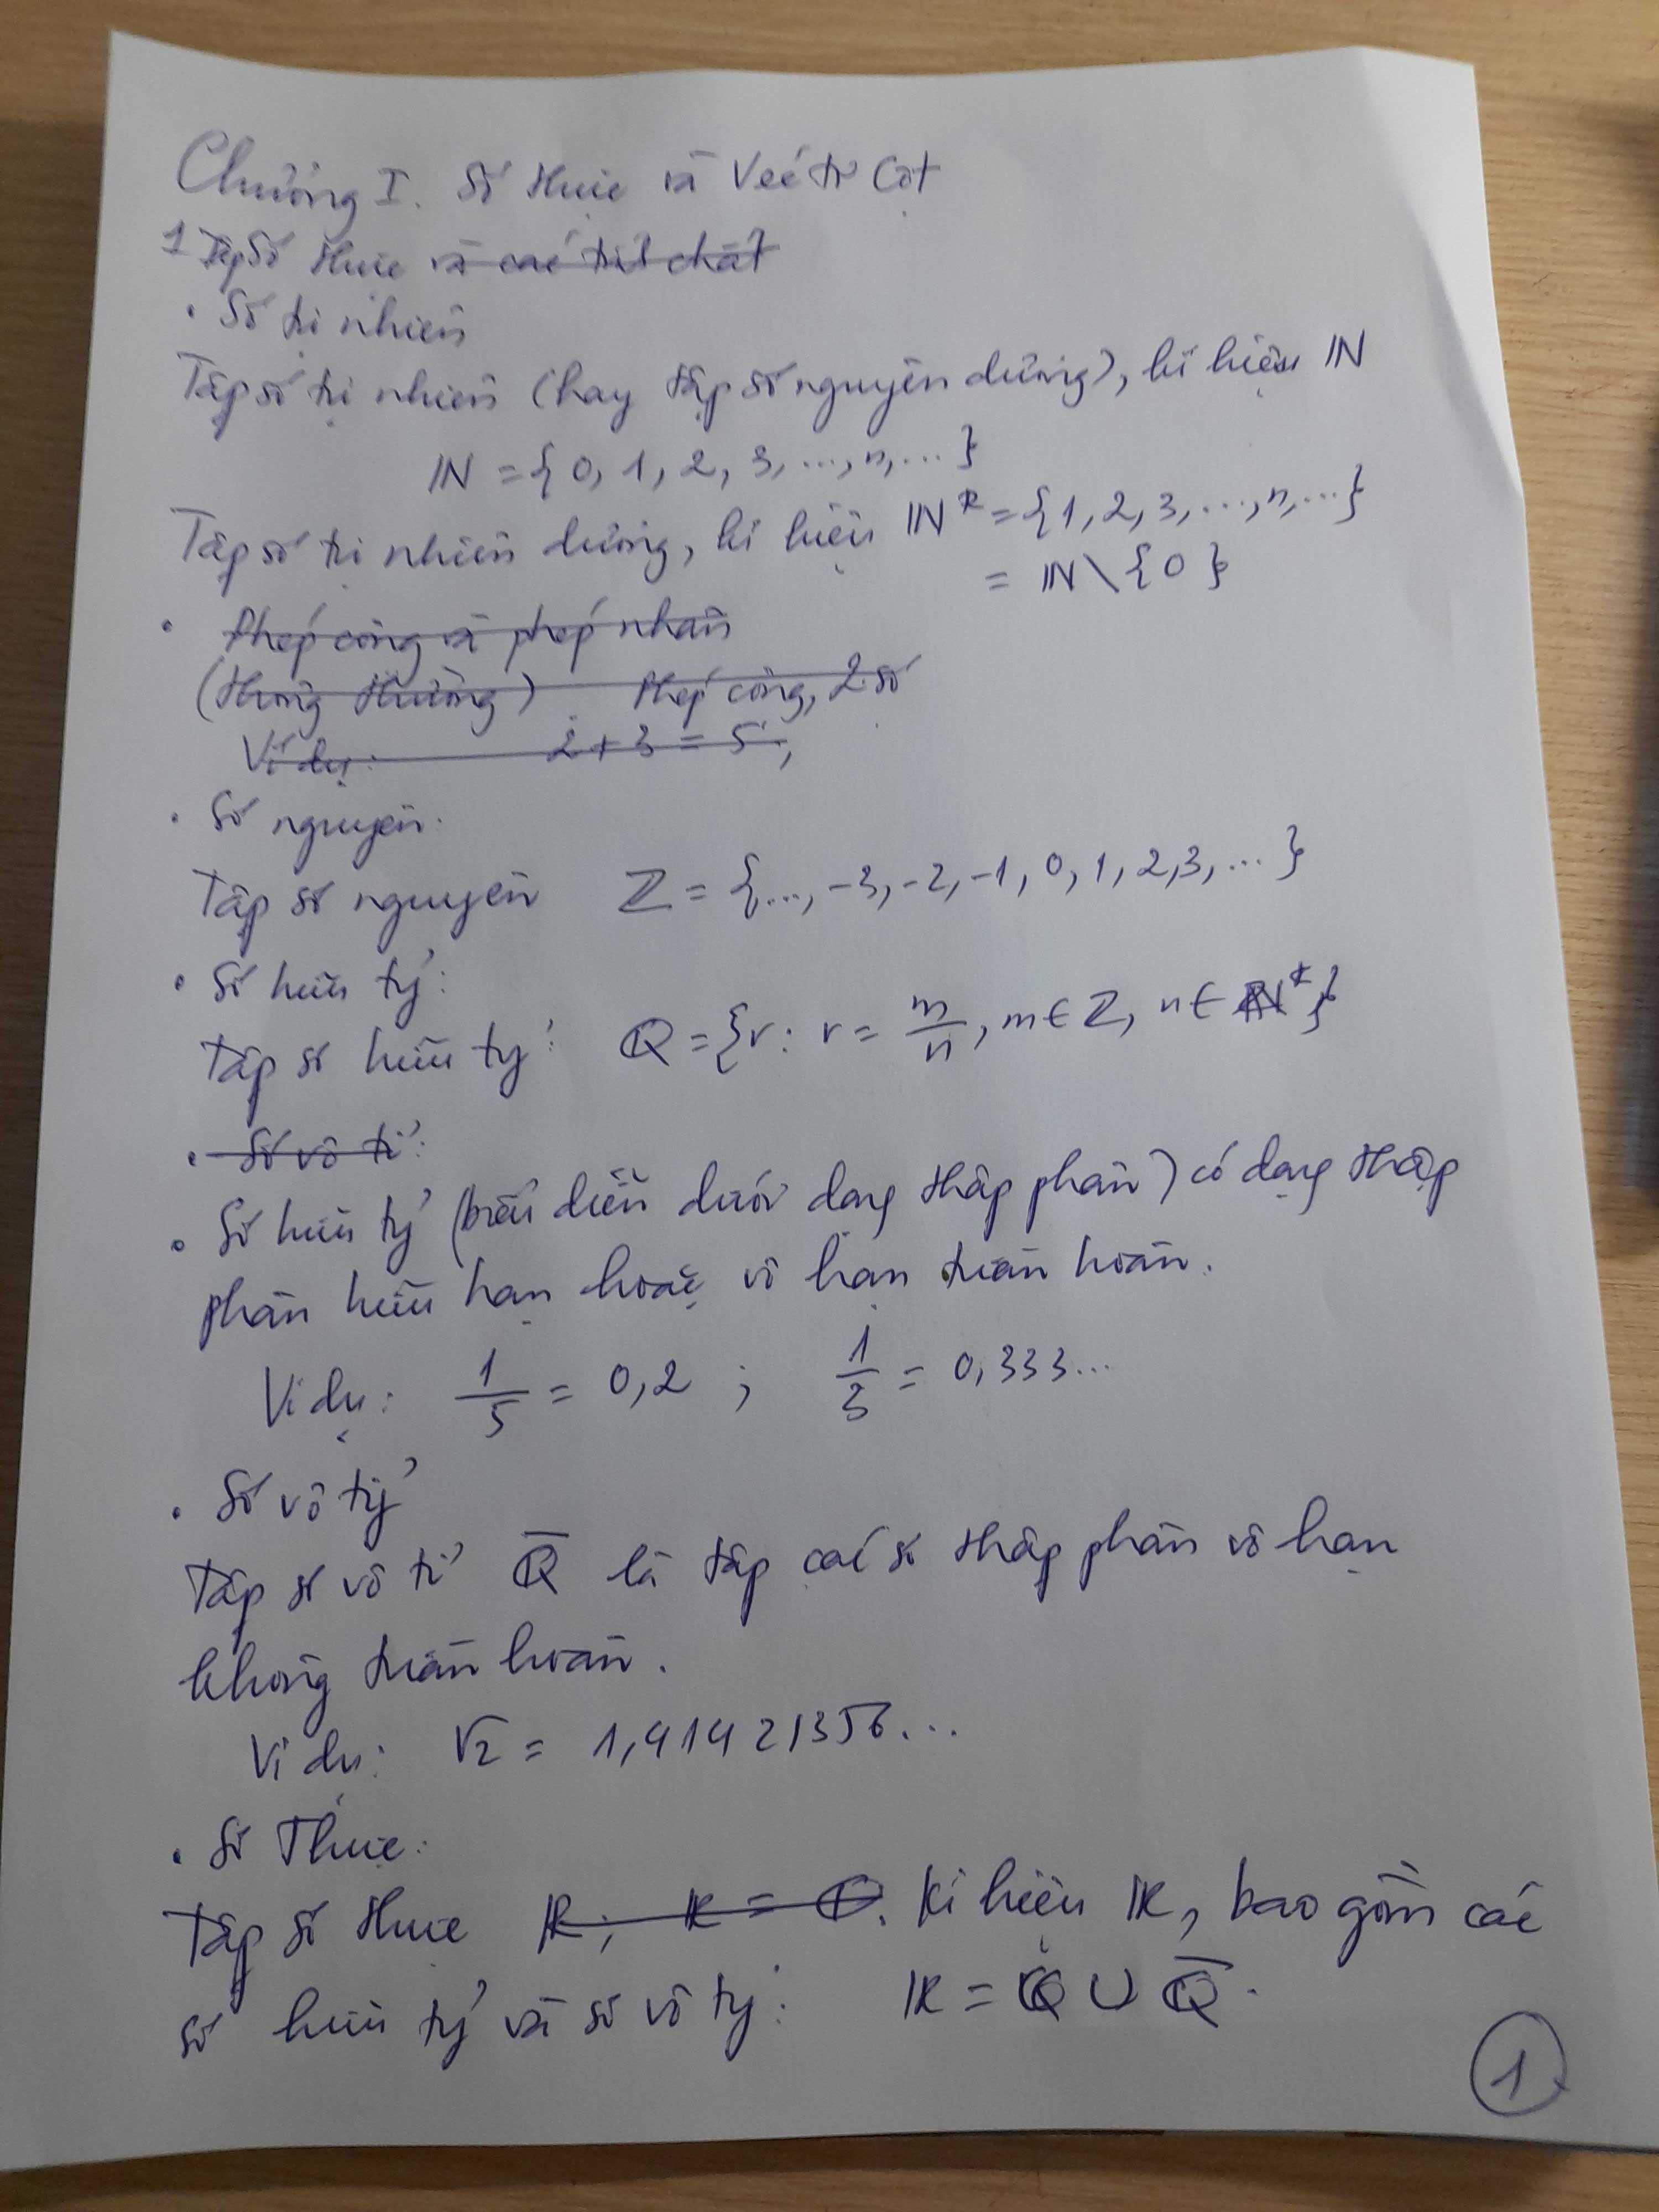 Chương I. Số thực và Véctơ Cột
1 Tập Số thực và các tính chất
• Số tự nhiên
Tập số tự nhiên (hay tập số nguyên dương), kí hiệu ℕ
ℕ = {0, 1, 2, 3, ..., n, ...}
Tập số tự nhiên dương, kí hiệu ℕ* = {1, 2, 3, ..., n, ...}
= ℕ \ {0}
• Phép cộng và phép nhân
(thông thường) Phép cộng, 2 số
Ví dụ: 2 + 3 = 5,
• Số nguyên:
Tập số nguyên ℤ = {..., -3, -2, -1, 0, 1, 2, 3, ...}
• Số hữu tỷ:
Tập số hữu tỷ: ℚ = {r : r = m/n, m ∈ ℤ, n ∈ ℕ*}
• Số vô tỉ:
• Số hữu tỷ (biểu diễn dưới dạng thập phân) có dạng thập
phân hữu hạn hoặc vô hạn tuần hoàn.
Ví dụ: 1/5 = 0,2 ; 1/3 = 0,333...
• Số vô tỷ
Tập số vô tỉ ℚ̅ là tập các số thập phân vô hạn
không tuần hoàn.
Ví dụ: √2 = 1,41421356...
• Số Thực:
Tập số thực ℝ; ℝ = ℚ. Kí hiệu ℝ, bao gồm các
số hữu tỷ và số vô tỷ: ℝ = ℚ ∪ ℚ̅.
1